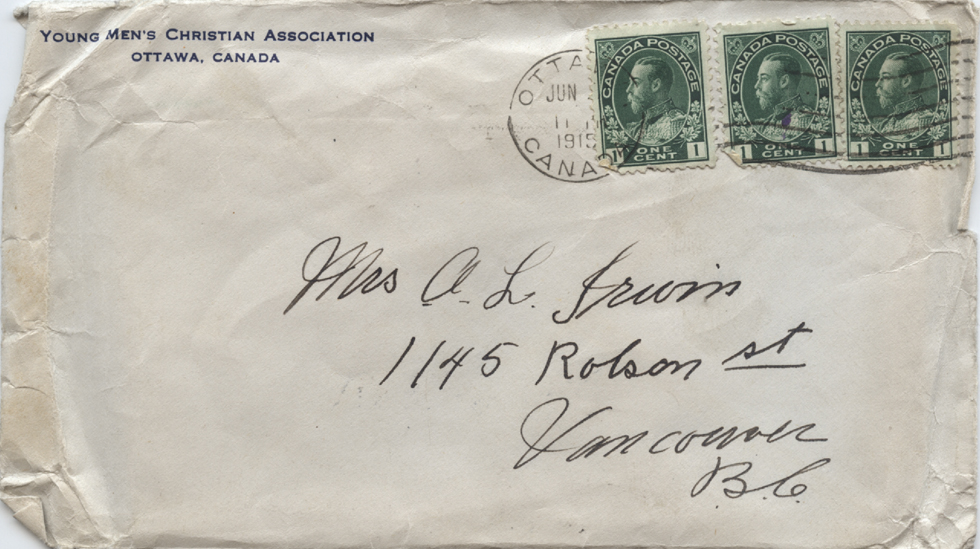 YOUNG MEN'S CHRISTIAN ASSOCIATION
OTTAWA, CANADA
OTTA
JUN
1915
CANAD
CANADA POSTAGE
1 ONE CENT 1
CANADA POSTAGE
1 ONE CENT 1
CANADA POSTAGE
1 ONE CENT 1
Mrs A. L. Irwin
1145 Robson st
Vancouver
B.C.